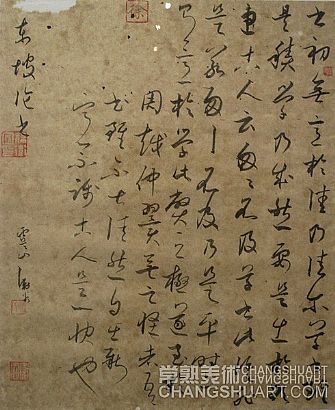 書初無意於佳乃佳爾草書雖
是積學乃成然要是出於欲
速古人云匆匆不及草書此語非
是若匆匆不及乃是平時
亦有意於學此弊之極遂至於
周越仲翼無足怪者吾
書雖不甚佳然自出新
意不踐古人是一快也
東坡論書
虞山
常熟美術
CHANGSHUART